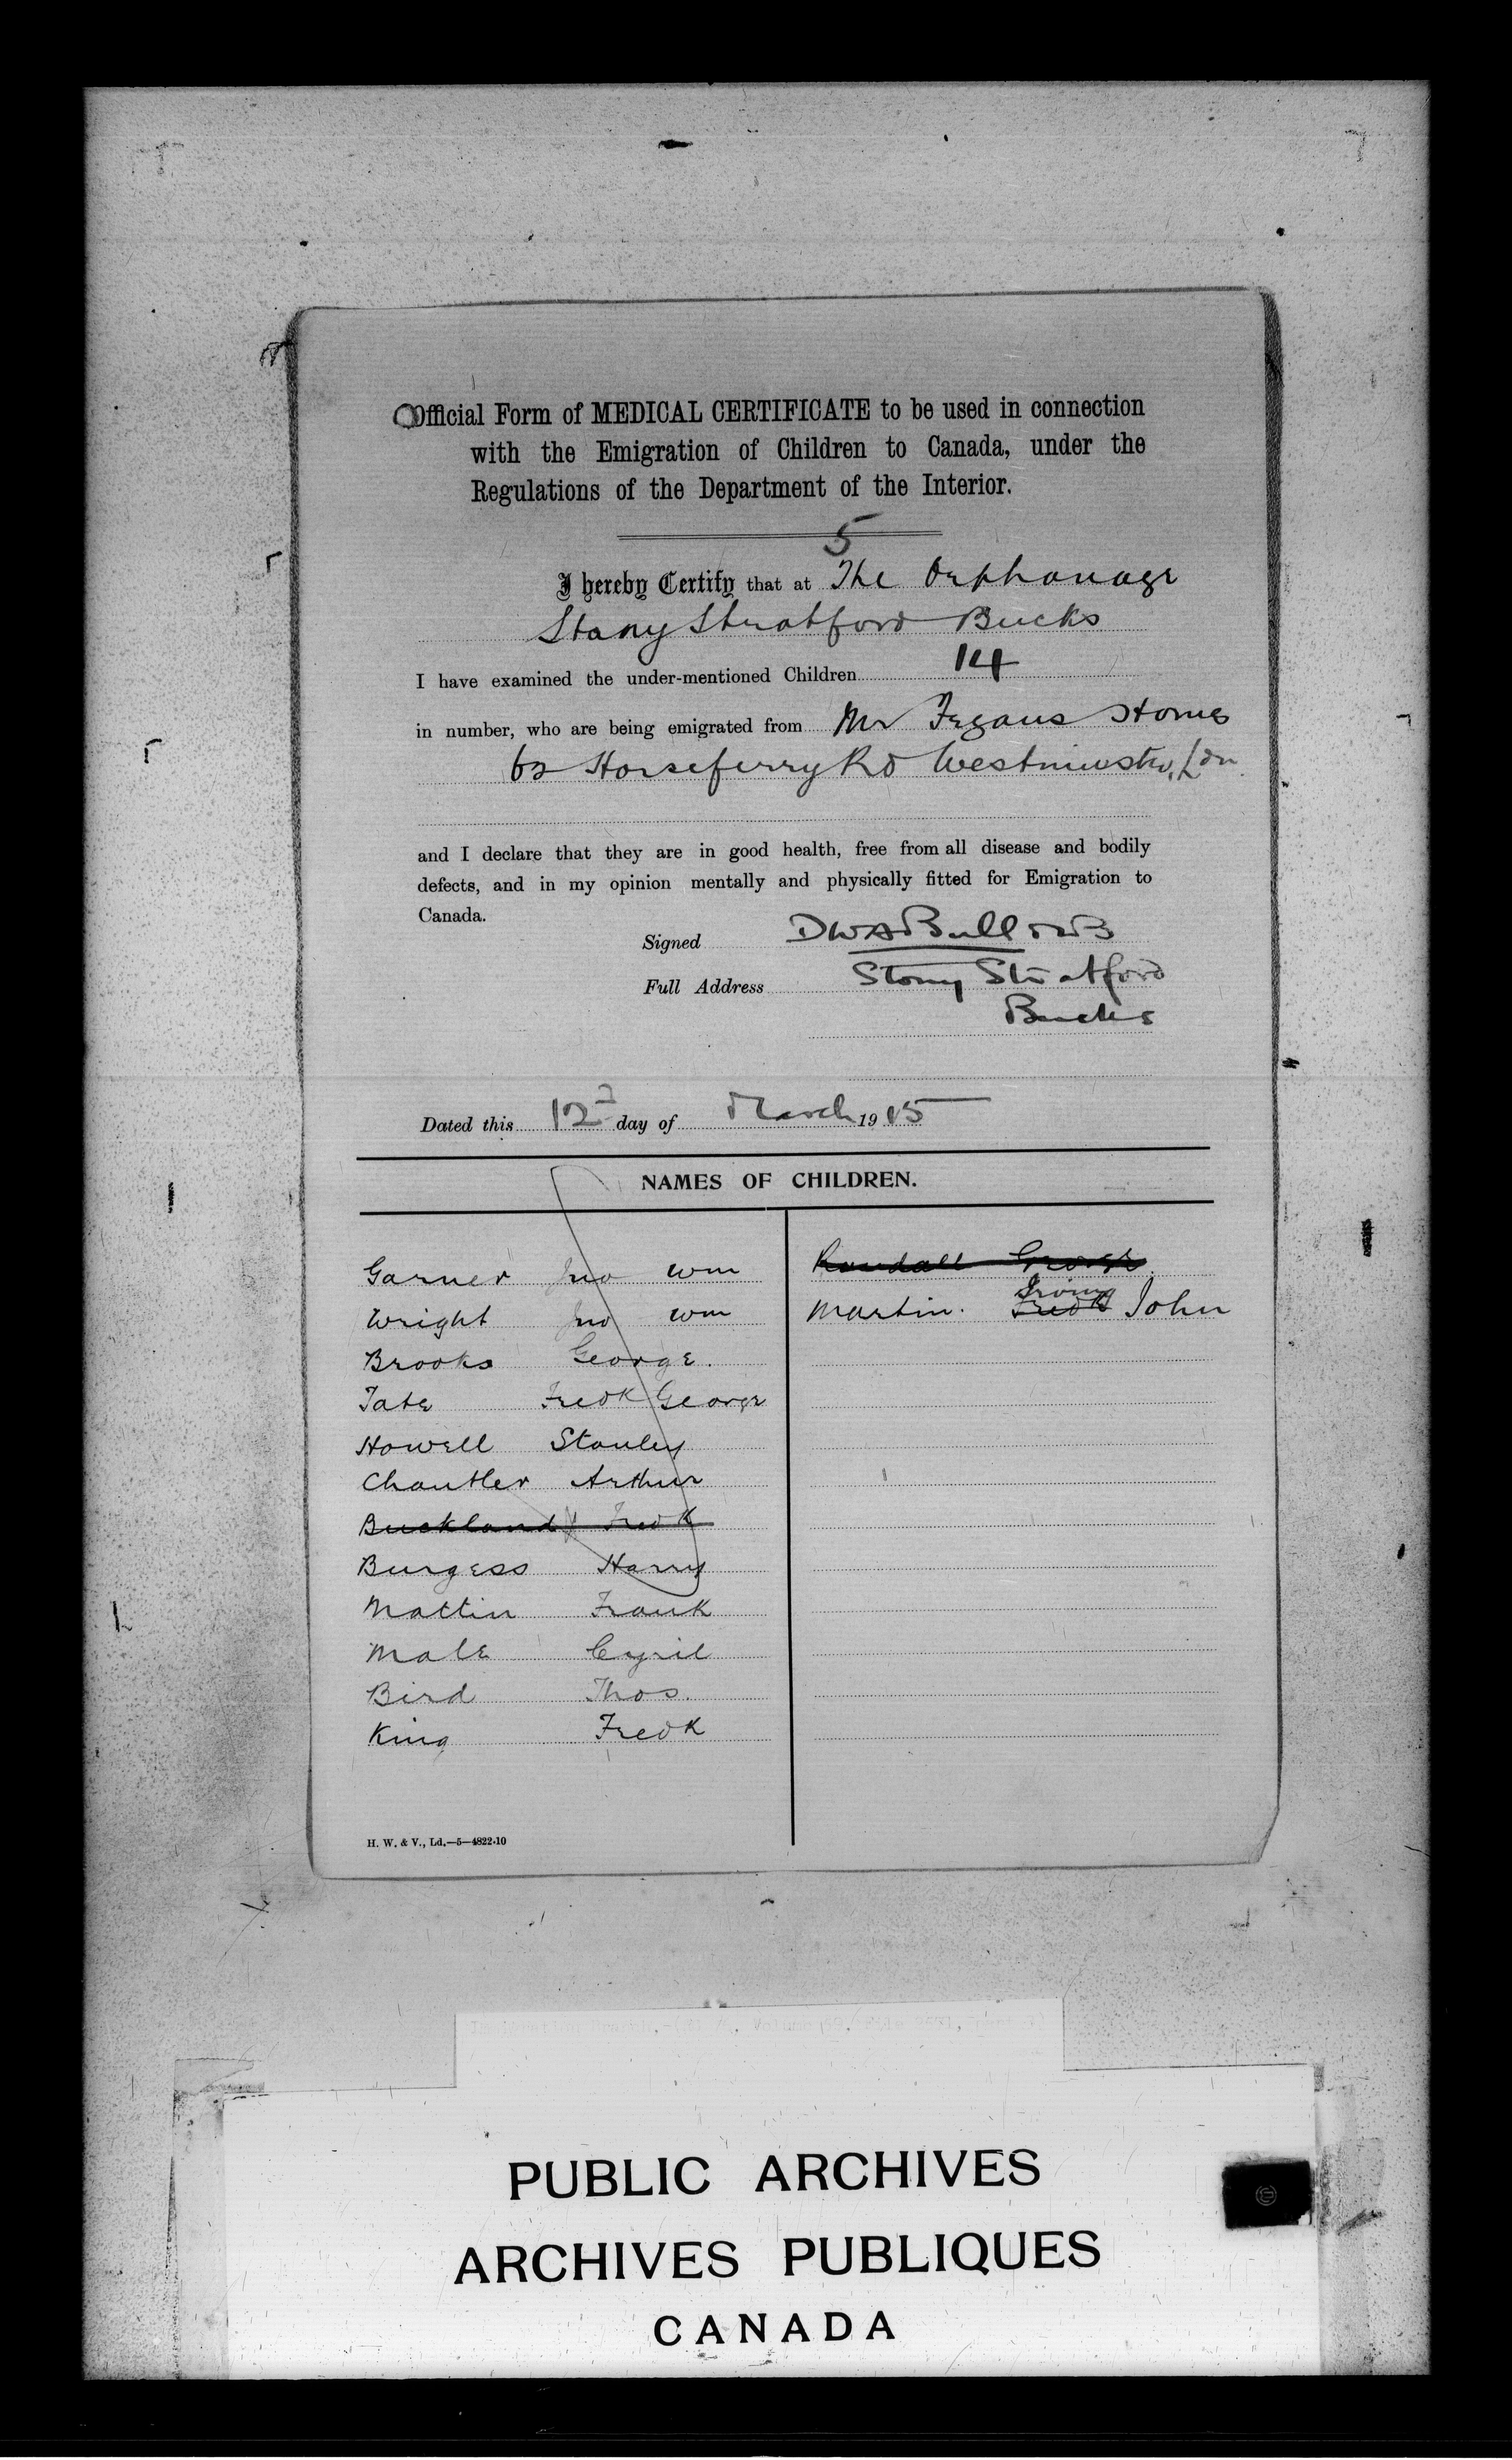 Official Form of MEDICAL CERTIFICATE to be used in connection
with the Emigration of Children to Canada, under the
Regulations of the Department of the Interior.
5
I hereby Certify that at The Orphanage
Stony Stratford Bucks
I have examined the under-mentioned Children 14
in number, who are being emigrated from Mr Fegans Homes
62 Horseferry Rd Westminster, Ldn
and I declare that they are in good health, free from all disease and bodily
defects, and in my opinion mentally and physically fitted for Emigration to
Canada.
Signed DWA Bull
Full Address Stony Stratford
Bucks
Dated this 12 day of March 1915
NAMES OF CHILDREN.
Garner Jno Wm
Wright Jno Wm
Brooks George.
Tate Fredk George
Howell Stanley
Chantler Arthur
Buckland Fredk
Burgess Harry
Mattin Frank
Male Cyril
Bird Thos.
King Fredk
Randall George
Martin. Fredk Irving John
H. W. & V., Ld.—5—4822-10
PUBLIC ARCHIVES
ARCHIVES PUBLIQUES
CANADA